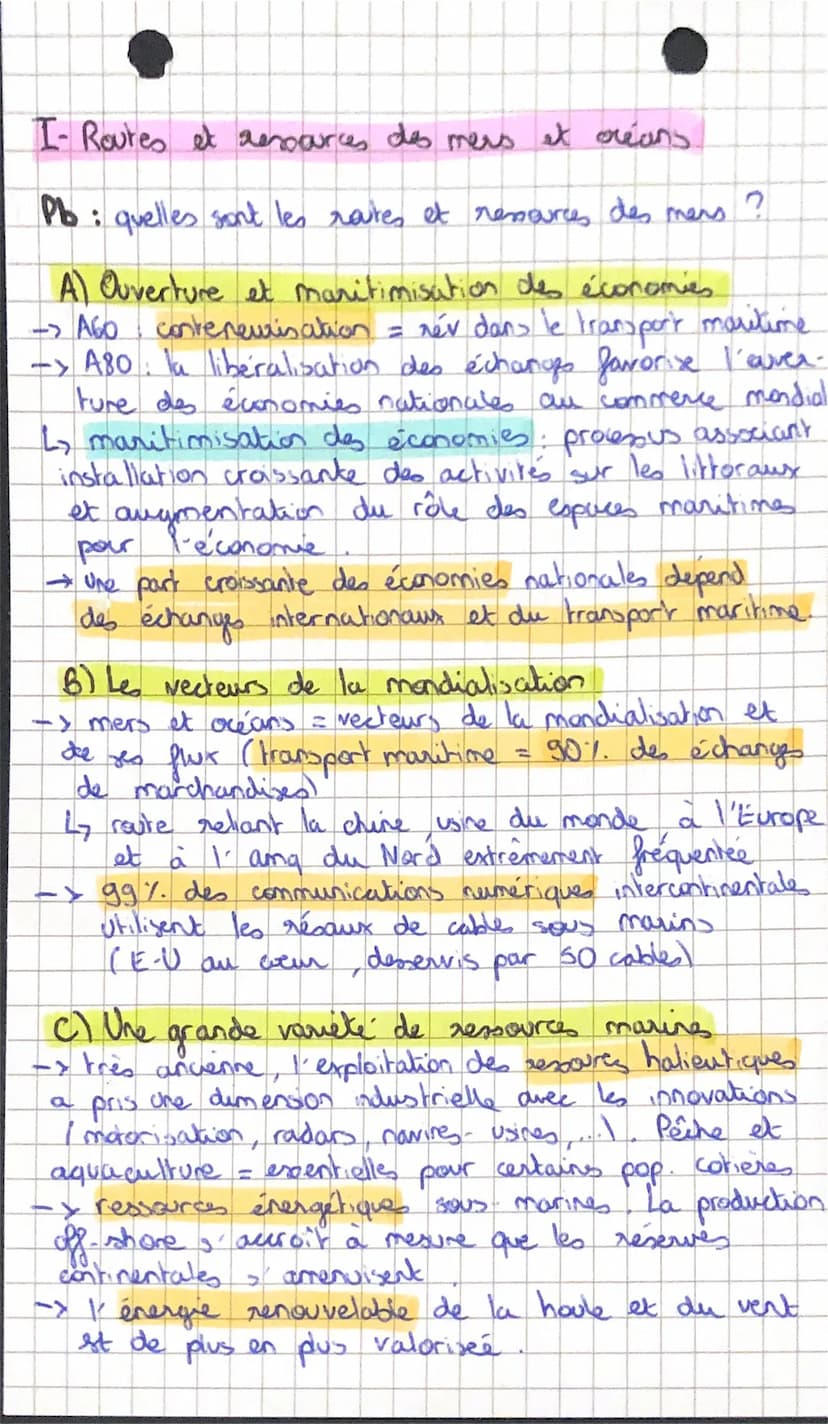 I- Routes et ressources des mers et océans
Pb : quelles sont les routes et ressources des mers ?
A) Ouverture et maritimisation des économies
-> A60 : conteneurisation = rév dans le transport maritime
-> A80 : la libéralisation des échanges favorise l'ouver-
ture des économies nationales au commerce mondial
↳ maritimisation des économies : processus associant
installation croissante des activités sur les littoraux
et augmentation du rôle des espaces maritimes
pour l'économie.
→ une part croissante des économies nationales dépend
des échanges internationaux et du transport maritime.
B) Les vecteurs de la mondialisation
-> mers et océans = vecteurs de la mondialisation et
de ses flux (transport maritime = 90% des échanges
de marchandises)
↳ route reliant la chine, usine du monde, à l'Europe
et à l'amq du Nord extrêmement fréquentée
-> 99% des communications numériques intercontinentales
utilisent les réseaux de cables sous marins
(E-U au cœur, desservis par 50 cables)
C) Une grande variété de ressources marines
-> très ancienne, l'exploitation des ressources halieutiques
a pris une dimension industrielle avec les innovations
(motorisation, radars, navires-usines,...). Pêche et
aquaculture = essentielles pour certaines pop. cotières
-> ressources énergétiques sous-marines. La production
off-shore s'accroît à mesure que les réserves
continentales s'amenuisent.
-> l'énergie renouvelable de la houle et du vent
est de plus en plus valorisée.